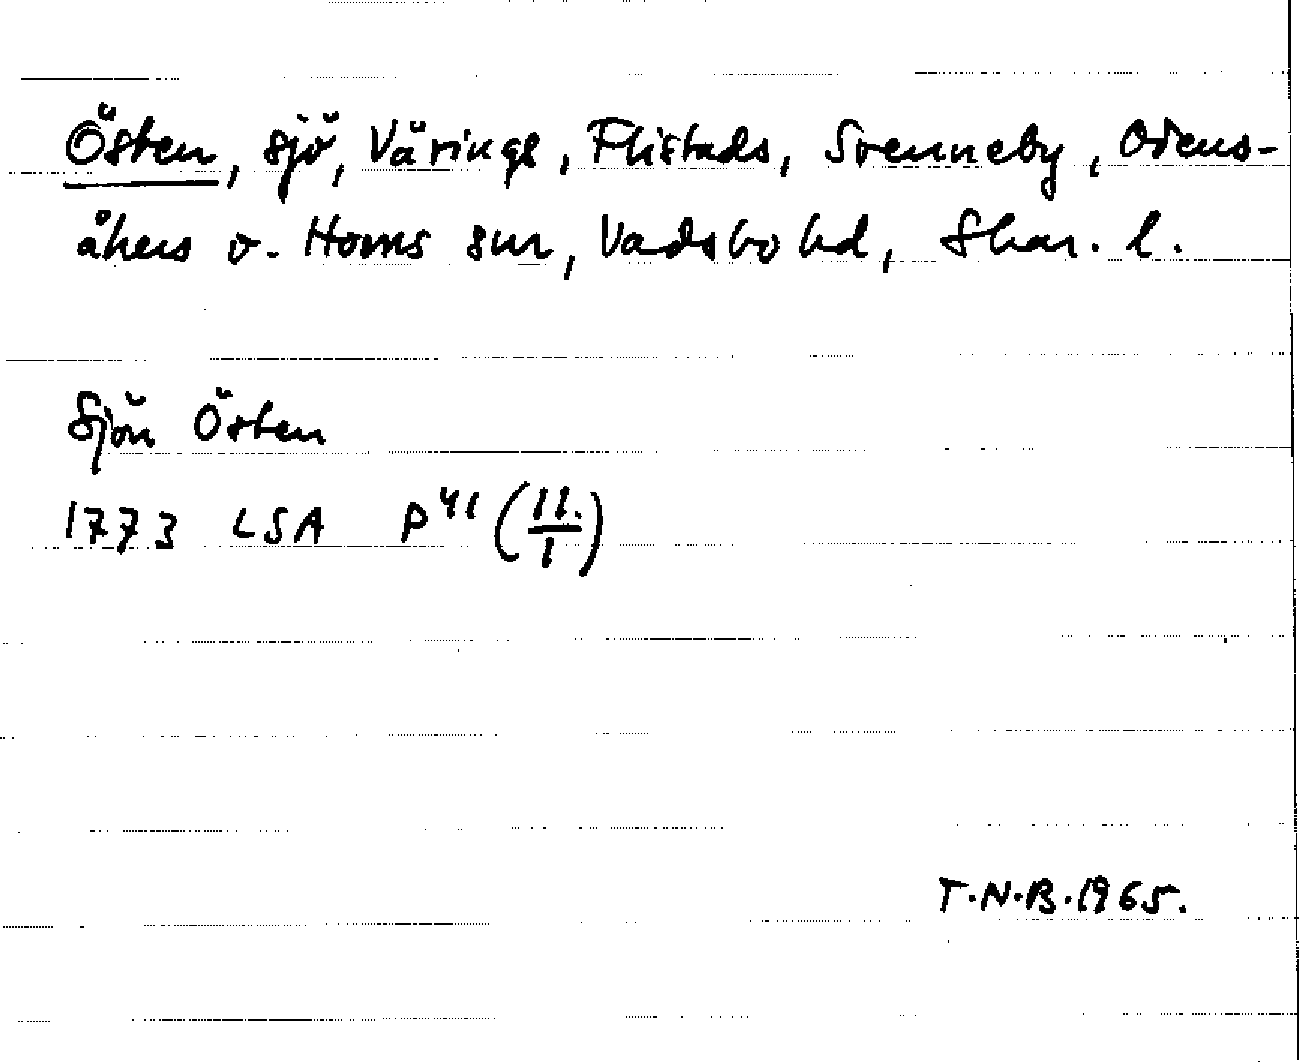 Östen, sjö, Värings, Flistads, Svenneby, Odens-
åkers o. Horns snr, Vadsbo hd, Skar. l.
Sjön Östen
1773 LSA P⁴¹ (11./1)
T.N.B. 1965.